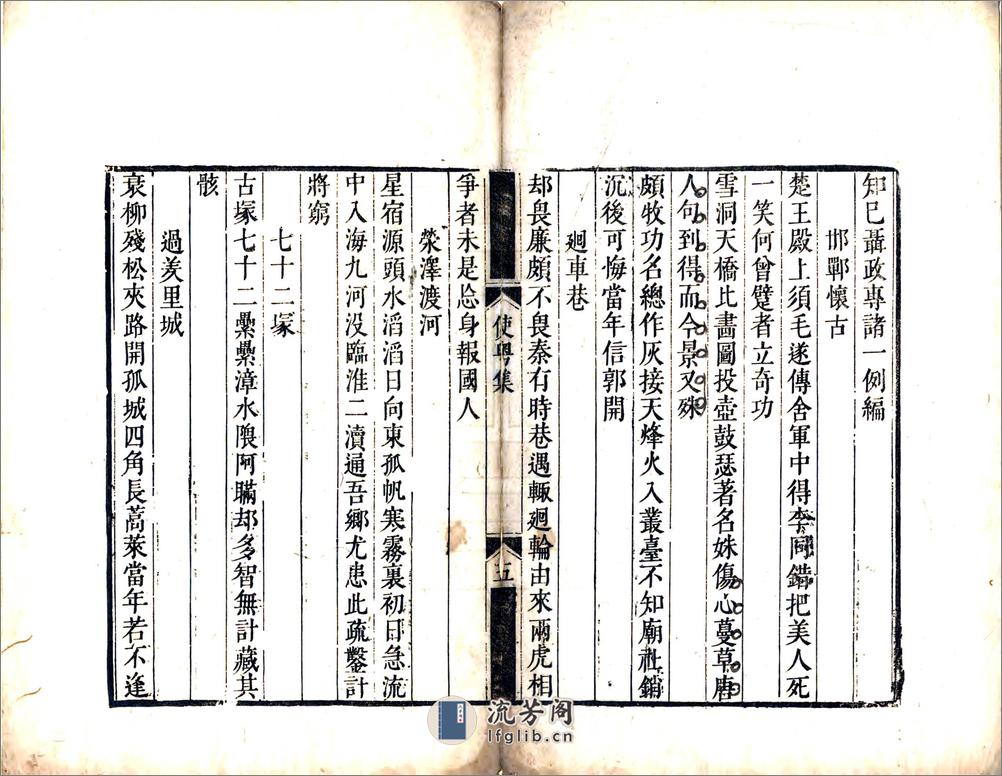 知已聶政專諸一例編
邯鄲懷古
楚王殿上須毛遂傳舍軍中得李同錯把美人死
一笑何曾躄者立奇功
雪洞天橋比畵圖投壺鼓瑟著名姝傷心蔓草唐
人句到得而今景又殊
頗牧功名總作灰接天烽火入叢臺不知廟社銷
沉後可悔當年信郭開
廻車巷
却畏廉頗不畏秦有時巷遇輙廻輪由來兩虎相
使粵集
五
爭者未是忩身報國人
滎澤渡河
星宿源頭水滔滔日向東孤帆寒霧裏初日急流
中入海九河没臨淮二瀆通吾鄉尤患此疏鑿計
將窮
七十二冢
古塚七十二纍纍漳水隈阿瞞却多智無計藏其
骸
過羑里城
衰柳殘松夾路開孤城四角長蒿萊當年若不逢
流芳阁
lfglib.cn